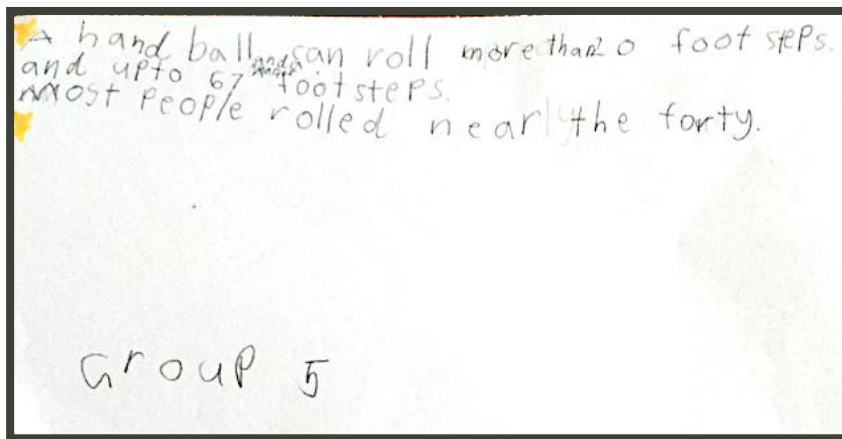 A hand ball can roll more than 20 foot steps.
and upto 67 foot steps.
Most people rolled near the forty.
Group 5